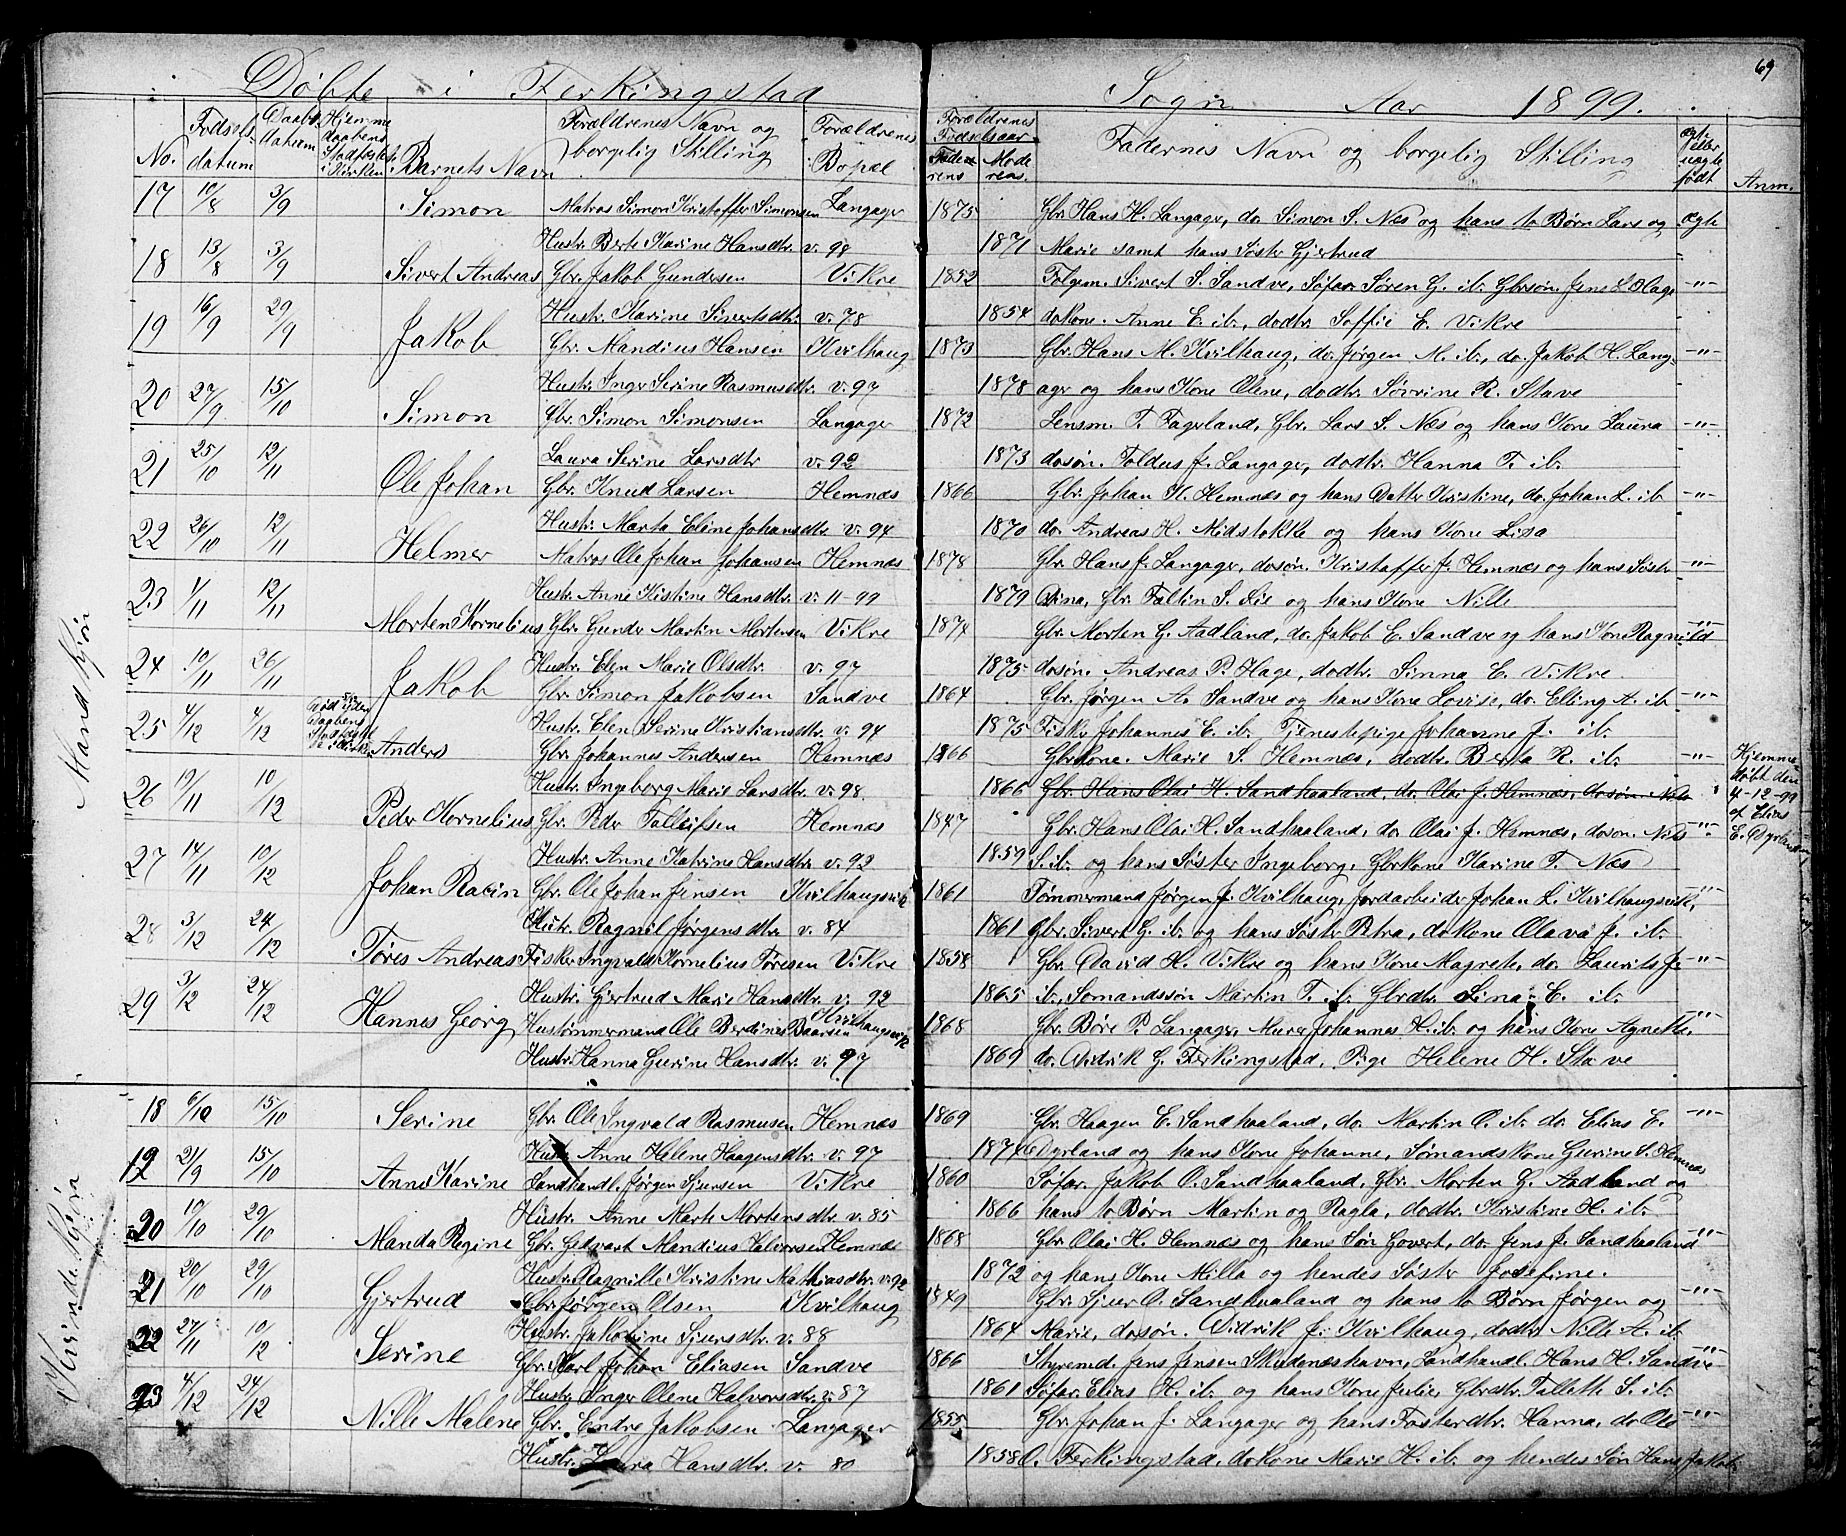 69
Døbte i Ferkingstad Sogn Aar 1899.
No. Fødsels datum Daabs datum Hjemme daabens Stadfæstelse i Kirken Barnets Navn Forældrenes Navn og borgelig Stilling Forældrenes Bopæl Forældrenes Fødselsaar Faderens Moderens Faddernes Navn og borgelig Stilling ægte eller uægte født Anm.
Mandkjøn
17 10/8 3/9 Simon Matros Simon Kristoffer Simonsen Langager 1875 Gbr. Hans H. Langager, do. Simon S. Næs og hans to Børn Lars og ægte
Hustr. Berte Karine Hansdtr. v. 98 1871 Marie samt hans Søster Gjertrud
18 13/8 3/9 Sivert Andreas Gbr. Jakob Gundersen Vikre 1852 Følgem. Sivert S. Sandve, Søfar. Søren G. ib. Gbrsøn. Jens E. Hage -"-
Hustr. Karine Sivertsdtr. v. 78 1854 dokone. Anne E. ib., dodtr. Soffie E. Vikre
19 16/9 29/9 Jakob Gbr. Mandius Hansen Kvilhaug 1873 Gbr. Hans M. Kvilhaug, do. Jørgen M. ib., do. Jakob H. Lang- -"-
Hustr. Inger Serine Rasmusdtr. v. 97 1878 ager og hans Kone Olene, dodtr. Søvrine R. Stave
20 27/9 15/10 Simon Gbr. Simon Simonsen Langager 1872 Lensm. T. Fagerland, Gbr. Lars S. Næs og hans Kone Laura -"-
Laura Serine Larsdtr v. 92 1873 dosøn. Foldus J. Langager, dodtr. Hanna T. ib.
21 25/10 12/11 Ole Johan Gbr. Knud Larsen Hemnæs 1866 Gbr. Johan K. Hemnæs og hans Datter Kristine, do. Johan L. ib -"-
Hustr. Marta Eline Johansdtr v. 94 1870 do. Andreas H. Midstokke og hans Kone Lisa
22 26/10 12/11 Helmer Matros Ole Johan Johansen Hemnæs 1878 Gbr. Hans J. Langager, dosøn. Kristoffer J. Hemnæs og hans Søstr -"-
Hustr. Anne Kistine Hansdtr. v. 11-99 1879 Dina, Gbr. Faltin S. Lie og hans Kone Nille
23 1/11 12/11 Morten Kornelius Gbr. Gunder Martin Mortensen Vikre 1874 Gbr. Morten G. Aadland, do. Jakob E. Sandve og hans Kone Ragnild -"-
Hustr. Elen Marie Olsdtr. v. 97 1875 dosøn. Andreas P. Hage, dodtr. Sinna E. Vikre.
24 10/11 26/11 Jakob Gbr. Simon Jakobsen Sandve 1864 Gbr. Jørgen A. Sandve og hans Kone Lovise, do. Elling A. ib -"-
Hustr. Elen Serine Kristiansdtr v. 94 1875 Fisker Johannes E. ib., Tjenestepige Johanne J. ib.
25 4/12 4/12 Død uden Daabens Stadfæstelse i Kirken Anders Gbr. Johannes Andersen Hemnæs 1866 Gbrkone. Marie S. Hemnæs, dodtr. Berta R. ib. -"- Hjemmedøbt den 4-12-99 af Elias E. Dyrland
Hustr. Ingeborg Marie Larsdtr. v. 98. 1866 Gbr. Hans Olai H. Sandhaaland, do. Olai J. Hemnæs, dosøn. Nils
26 19/11 10/12 Peder Kornelius Gbr. Peder Tolleifsen Hemnæs 1847 Gbr. Hans Olai H. Sandhaaland, do. Olai J. Hemnæs, dosøn. Nils -"-
Hustr. Anne Katrine Hansdtr v. 92 1859 S. ib. og hans Søster Ingeborg, Gbrkone Karine T. Næs
27 14/11 10/12 Johan Racin Gbr. Ole Johan Jensen Kvilhaugsvik 1861 Tømmermand Jørgen J. Kvilhaug, Jordarbeider Johan L. Kvilhaugsvik, -"-
Hustr. Ragnil Jørgensdtr. v. 84 1861 Gbr. Sivert G. ib. og hans Søster Petra, dokone Olava J. ib.
28 3/12 24/12 Tøres Andreas Fisker Ingvald Kornelius Tøresen Vikre 1858 Gbr. David H. Vikre og hans Kone Magrete, do. Laurits J. -"-
Hustr. Gjertrud Marie Hansdtr. v. 92 1865 ib., Sømandssøn Martin T. ib. Gbrdtr. Sina E. ib.
29 3/12 24/12 Hannes Georg Hustømmermand Ole Berdines Baarsen Kvilhaugsvik 1868 Gbr. Børe P. Langager, Murer Johannes H. ib. og hans Kone Agnette, -"-
Hustr. Hanna Gurine Hansdtr. v. 97 1869 do. Didrik G. Ferkingstad, Pige Helene H. Stave
Kvindekjøn
18 6/10 15/10 Serine Gbr. Ole Ingvald Rasmusen Hemnæs 1869 Gbr. Haagen E. Sandhaaland, do. Martin O. ib. do. Elias E. -"-
Hustr. Anne Helene Haagensdtr v. 97 1874 Dyrland og hans Kone Johanne, Sømandskone Gurine S. Hemnæs
19 21/9 15/10 Anne Karine Landhandl. Jørgen Sjursen Vikre 1860 Søfar. Jakob O. Sandhaaland, Gbr. Morten G. Aadland og
Hustr. Anne Marte Mortensdtr. v. 85 1866 hans to Børn Martin og Ragla, dodtr. Kristine H. ib.
20 10/10 29/10 Manda Regine Gbr. Gedvart Mandius Halvorsen Hemnæs 1868 Gbr. Olai H. Hemnæs og hans Søn Govert, do. Jens J. Sandhaaland -"-
Hustr. Ragnille Kristine Mathiasdtr. v. 92 1872 og hans Kone Milla og hendes Søster Josefine.
21 20/10 29/10 Gjertrud Gbr. Jørgen Olsen Kvilhaug 1849 Gbr. Sjur O. Sandhaaland og hans to Børn Jørgen og -"-
Hustr. Jakobine Sjursdtr v. 88 1864 Marie, dosøn. Didrik J. Kvilhaug, dodtr. Nille A. ib.
22 27/11 10/12 Serine Gbr. Karl Johan Eliasen Sandve 1866 Styremd. Jens Jensen Skudneshavn, Landhandl. Hans H. Sandve -"-
Hustr. Inger Olene Halvorsdtr. v. 87 1861 Søfar. Elias H. ib. og hans Kone Julie, Gbrdtr. Tallette S. ib.
23 4/12 24/12 Nille Malene Gbr. Endre Jakobsen Langager 1855 Gbr. Johan J. Langager og hans Fosterdtr. Hanna, do Ole -"-
Hustr. Laura Hansdtr. v. 80 1858 O. Ferkingstad, dokone Marie H. ib. og hendes Søn Hans Jakob.